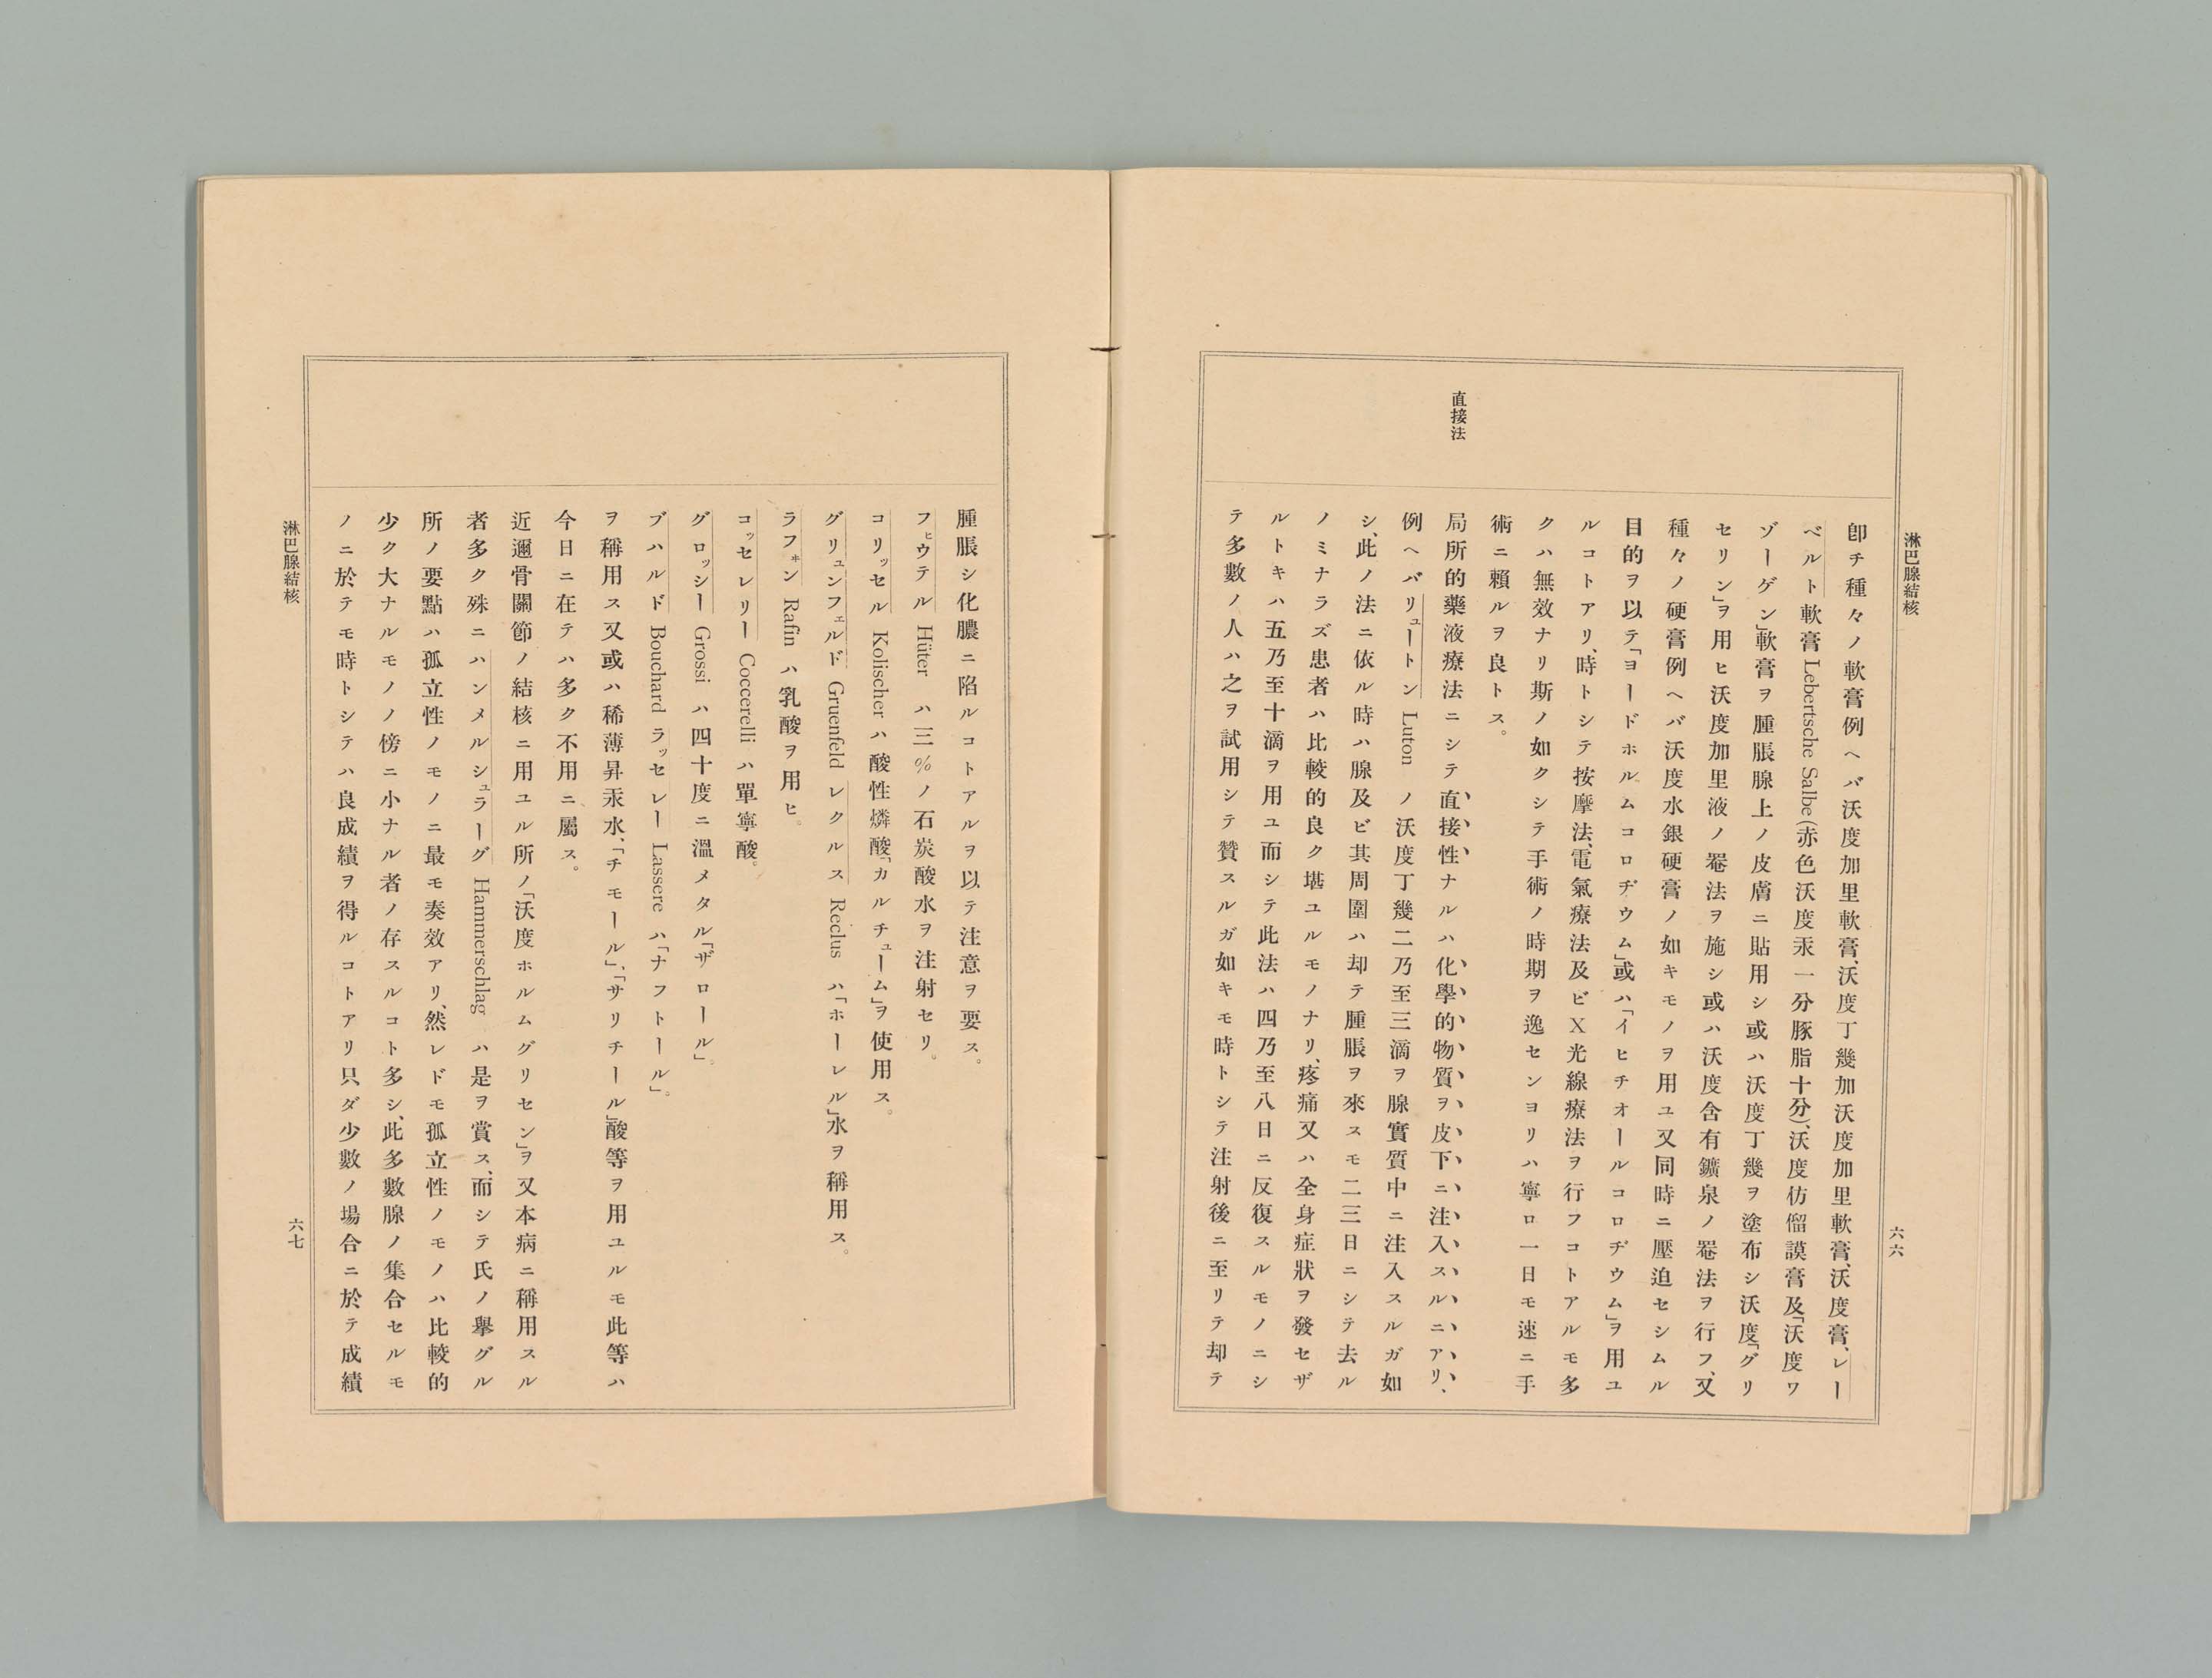 淋巴腺結核
六六
直接法
卽チ種々ノ軟膏例ヘバ沃度加里軟膏、沃度丁幾加沃度加里軟膏、沃度膏、レー
ベルト軟膏 Lebertsche Salbe (赤色沃度汞一分豚脂十分)、沃度仿㑹謨膏及「沃度ワ
ゾーゲン」軟膏ヲ腫脹腺上ノ皮膚ニ貼用シ或ハ沃度丁幾ヲ塗布シ沃度「グリ
セリン」ヲ用ヒ沃度加里液ノ罨法ヲ施シ或ハ沃度含有鑛泉ノ罨法ヲ行フ、又
種々ノ硬膏例ヘバ沃度水銀硬膏ノ如キモノヲ用ユ又同時ニ壓迫セシムル
目的ヲ以テ「ヨードホルムコロヂウム」或ハ「イヒチオールコロヂウム」ヲ用ユ
ルコトアリ、時トシテ按摩法、電氣療法及ビX光線療法ヲ行フコトアルモ多
クハ無效ナリ斯ノ如クシテ手術ノ時期ヲ逸センヨリハ寧ロ一日モ速ニ手
術ニ賴ルヲ良トス。
局所的藥液療法ニシテ直接性ナルハ化學的物質ヲ皮下ニ注入スルニアリ、
例ヘバリュートン Luton ノ沃度丁幾二乃至三滴ヲ腺實質中ニ注入スルガ如
シ、此ノ法ニ依ル時ハ腺及ビ其周圍ハ却テ腫脹ヲ來スモ二三日ニシテ去ル
ノミナラズ患者ハ比較的良ク堪ユルモノナリ、疼痛又ハ全身症狀ヲ發セザ
ルトキハ五乃至十滴ヲ用ユ而シテ此法ハ四乃至八日ニ反復スルモノニシ
テ多數ノ人ハ之ヲ試用シテ贊スルガ如キモ時トシテ注射後ニ至リテ却テ
腫脹シ化膿ニ陷ルコトアルヲ以テ注意ヲ要ス。
フヒウテル Hüter ハ三%ノ石炭酸水ヲ注射セリ。
コリッセル Kolischer ハ酸性燐酸「カルチューム」ヲ使用ス。
グリュンフェルド Gruenfeld レクルス Reclus ハ「ホーレル」水ヲ稱用ス。
ラフヰン Rafin ハ乳酸ヲ用ヒ。
コッセレリー Coccerelli ハ單寧酸。
グロッシー Grossi ハ四十度ニ溫メタル「ザロール」。
ブハルド Bouchard ラッセレー Lassere ハ「ナフトール」。
ヲ稱用ス又或ハ稀薄昇汞水、「チモール」、「サリチール」酸等ヲ用ユルモ此等ハ
今日ニ在テハ多ク不用ニ屬ス。
近邇骨關節ノ結核ニ用ユル所ノ「沃度ホルムグリセン」ヲ又本病ニ稱用スル
者多ク殊ニハンメルシュラーグ Hammerschlag ハ是ヲ賞ス、而シテ氏ノ擧グル
所ノ要點ハ孤立性ノモノニ最モ奏效アリ、然レドモ孤立性ノモノハ比較的
少ク大ナルモノノ傍ニ小ナル者ノ存スルコト多シ、此多數腺ノ集合セルモ
ノニ於テモ時トシテハ良成績ヲ得ルコトアリ只ダ少數ノ場合ニ於テ成績
淋巴腺結核
六七